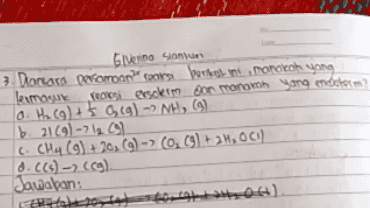 3. Diantara persamaan² reaksi berikut ini, manakah yang
termasuk reaksi eksoterm dan manakah yang endoterm?
a. H₂(g) + ½ O₂(g) → NH₃(g)
b. 2I(g) → I₂(g)
c. CH₄(g) + 2O₂(g) → CO₂(g) + 2H₂O(l)
d. C(s) → C(g)
Jawaban: